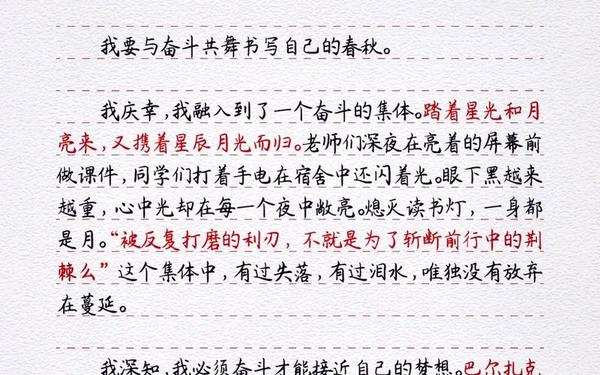 我要与奋斗共舞书写自己的春秋。
我庆幸,我融入到了一个奋斗的集体。踏着星光和月
亮来，又携着星辰月光而归。老师们深夜在亮着的屏幕前
做课件，同学们打着手电在宿舍中还闪着光。眼下黑越来
越重，心中光却在每一个夜中敞亮。熄灭读书灯，一身都
是月。“被反复打磨的利刃，不就是为了斩断前行中的荆
棘么”这个集体中，有过失落，有过泪水，唯独没有放弃
在蔓延。
我深知,我必须奋斗才能接近自己的梦想。巴尔扎克